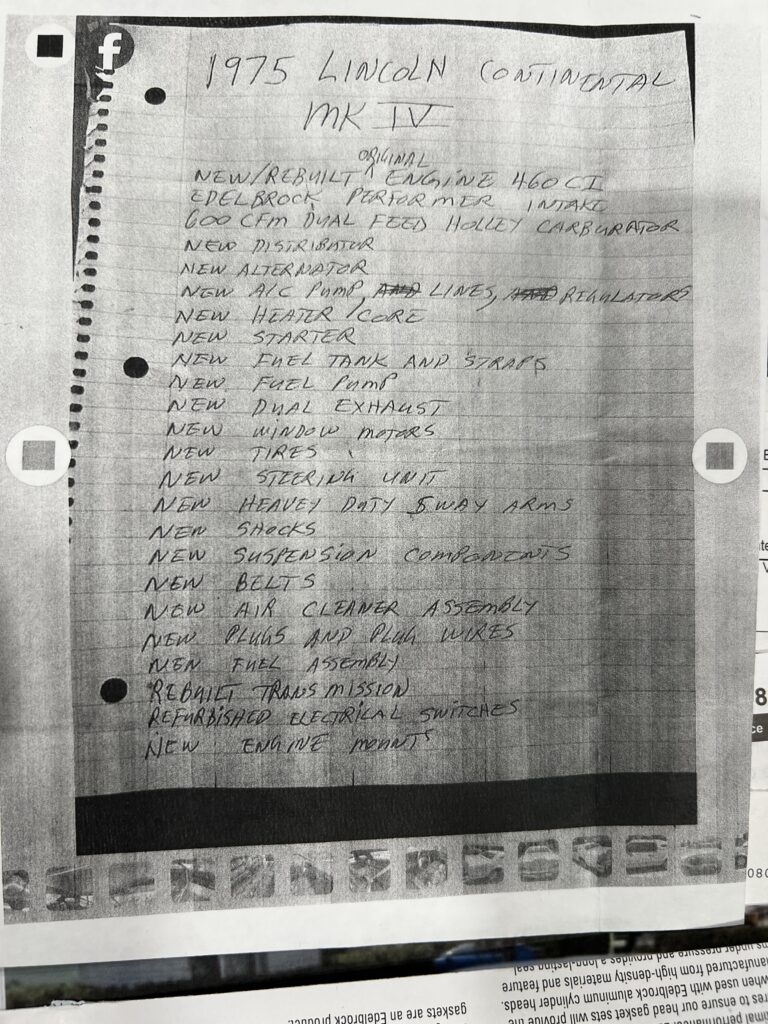 f
1975 LINCOLN CONTINENTAL
MK IV
ORIGINAL
NEW/REBUILT ENGINE 460 CI
EDELBROCK PERFORMER INTAKE
600 CFM DUAL FEED HOLLEY CARBURATOR
NEW DISTRIBATOR
NEW ALTERNATOR
NEW A/C PUMP, AND LINES, AND REGULATORS
NEW HEATER CORE
NEW STARTER
NEW FUEL TANK AND STRAPS
NEW FUEL PUMP
NEW DUAL EXHAUST
NEW WINDOW MOTORS
NEW TIRES
NEW STEERING UNIT
NEW HEAVEY DUTY SWAY ARMS
NEW SHOCKS
NEW SUSPENSION COMPONENTS
NEW BELTS
NEW AIR CLEANER ASSEMBLY
NEW PLUGS AND PLUG WIRES
NEW FUEL ASSEMBLY
REBUILT TRANSMISSION
REFURBISHED ELECTRICAL SWITCHES
NEW ENGINE MOUNTS
8
ce
080
res to ensure our head gasket sets will provide the
when used with Edelbrock aluminum cylinder heads.
manufactured from high-density materials and feature
under pressure and provides a long-lasting seal
gaskets are an Edelbrock product